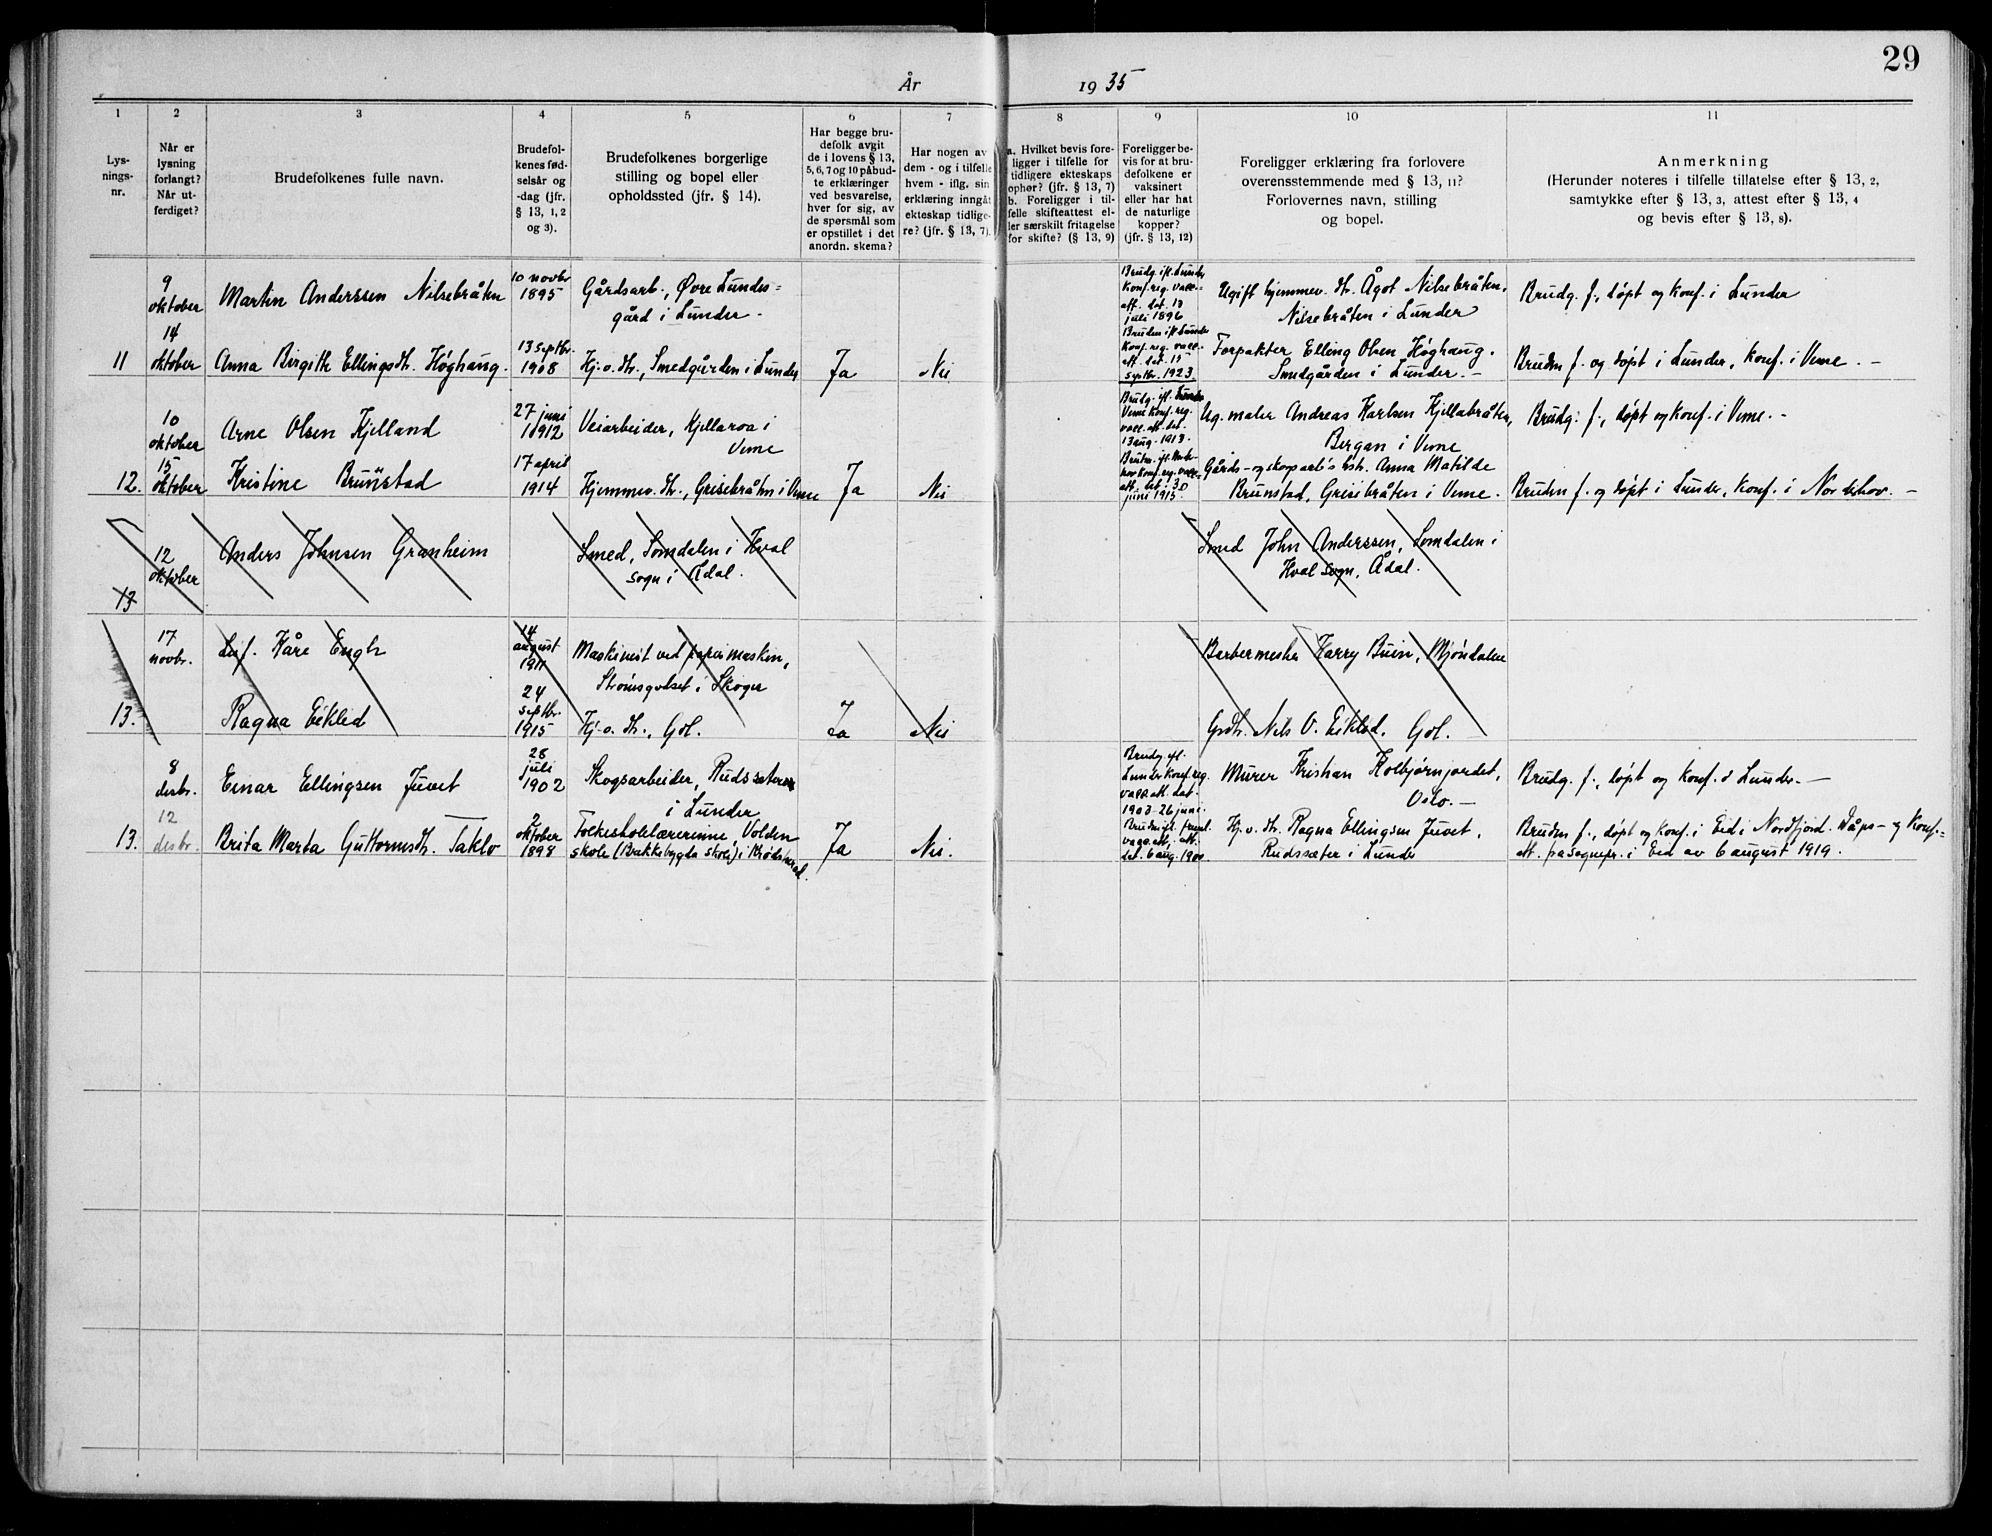 29
År 1935
1
Lys-
nings-
nr.
2
Når er
lysning
forlangt?
Når ut-
ferdiget?
3
Brudefolkenes fulle navn.
4
Brudefol-
kenes fød-
selsår og
-dag (jfr.
§ 13, 1, 2
og 3).
5
Brudefolkenes borgerlige
stilling og bopel eller
opholdssted (jfr. § 14).
6
Har begge bru-
defolk avgit
de i lovens § 13,
5, 6, 7 og 10 påbud-
te erklæringer
ved besvarelse,
hver for sig, av
de spørsmål som
er opstillet i det
anordn. skema?
7
Har nogen av
dem - og i tilfelle
hvem - iflg. sin
erklæring inngåt
ekteskap tidlige-
re? (jfr. § 13, 7).
8
a. Hvilket bevis fore-
ligger i tilfelle for
tidligere ekteskaps
ophør? (jfr. § 13, 7)
b. Foreligger i til-
felle skifteattest el-
ler særskilt fritagelse
for skifte? (§ 13, 9)
9
Foreligger be-
vis for at bru-
defolkene er
vaksinert
eller har hat
de naturlige
kopper?
(jfr. § 13, 12)
10
Foreligger erklæring fra forlovere
overensstemmende med § 13, 11?
Forlovernes navn, stilling
og bopel.
11
Anmerkning
(Herunder noteres i tilfelle tillatelse efter § 13, 2,
samtykke efter § 13, 3, attest efter § 13, 4
og bevis efter § 13, 8).
9
oktober
Martin Anderssen Nilsebråten
10 novbr
1895
Gårdsarb., Øvre Lundes=
gård i Lunder.
Brudg. ifl. Lunder
Konf.reg. vacc.-
att. dat. 13
juli 1896
Ugift hjemmev. dtr. Ågot Nilsebråten,
Nilsebråten i Lunder
Brudg. f., døpt og konf. i Lunder
11
14
oktober
Anna Birgith Ellingsdtr. Høghaug.
13 septbr.
1908
Hj. o. dtr., Smedgården i Lunder
Ja
Nei
Bruden ifl Lunder
Konf. reg. vacc.-
att. dat. 15
septbr. 1923.
Forpakter Elling Olsen Høghaug.
Smedgården i Lunder. -
Bruden f. og døpt i Lunder, konf. i Veme. -
10
oktober
Arne Olsen Kjelland
27 juni
1912
Veiarbeider, Kjellaroa i
Veme
Brudg. ifl.
Veme konf. reg.
vacc. att. dat.
13 aug. 1913.
Ug. maler Andreas Karlsen Kjellabråten,
Bergan i Veme
Brudg. f., døpt og konf. i Veme. -
12.
15
oktober
Kristine Brunstad
17 april
1914
Hjemmev. dtr., Grisebråten i Veme
Ja
Nei
att. dat. 30
juni 1915.
Gårds- og skogsarb's hstr. Anna Matilde
Brunstad, Grisebråten i Veme.
Bruden f. og døpt i Lunder, konf. i Norderhov. -
13
12
oktober
Anders Johnsen Granheim
Smed, Somdalen i Hval
sogn i Ådal.
Smed John Anderssen, Somdalen i
Hval sogn, Ådal.
17
novbr.
Leif. Kåre Engh
14
august
1911
Maskinist ved papirmaskin,
Strømsgodset i Skoger
Barbermester Harry Buin, Mjøndalen
13.
Ragna Eiklid
24
septbr.
1915
Hj. o. dtr., Gol.
Ja
Nei
Grdbr. Nils O. Eiklid. Gol.
8
desbr.
Einar Ellingsen Juvet
28
juli
1902
Skogsarbeider, Rudssæteren
i Lunder
Brudg. ifl.
Lunder konf. reg.
vacc. att. dat.
1903 26 juni.
Murer Kristian Kolbjørnjordet,
Oslo. -
Brudg. f., døpt og konf. i Lunder. -
13.
12
desbr.
Brita Marta Guttormsdtr. Taklo
2
oktober
1898
Folkeskolelærerinne, Volden
skole (Bakkebygda skole) i Krødsherad.
Ja
Nei.
Bruden ifl. freml.
vacc. att.
dat. 6 aug. 1900
Hj. v. dtr. Ragna Ellingsen Juvet,
Rudssæter i Lunder
Bruden f., døpt og konf. i Eid i Nordfjord. Dåps- og konf.-
att. fra sognepr. i Eid av 6 august 1919.